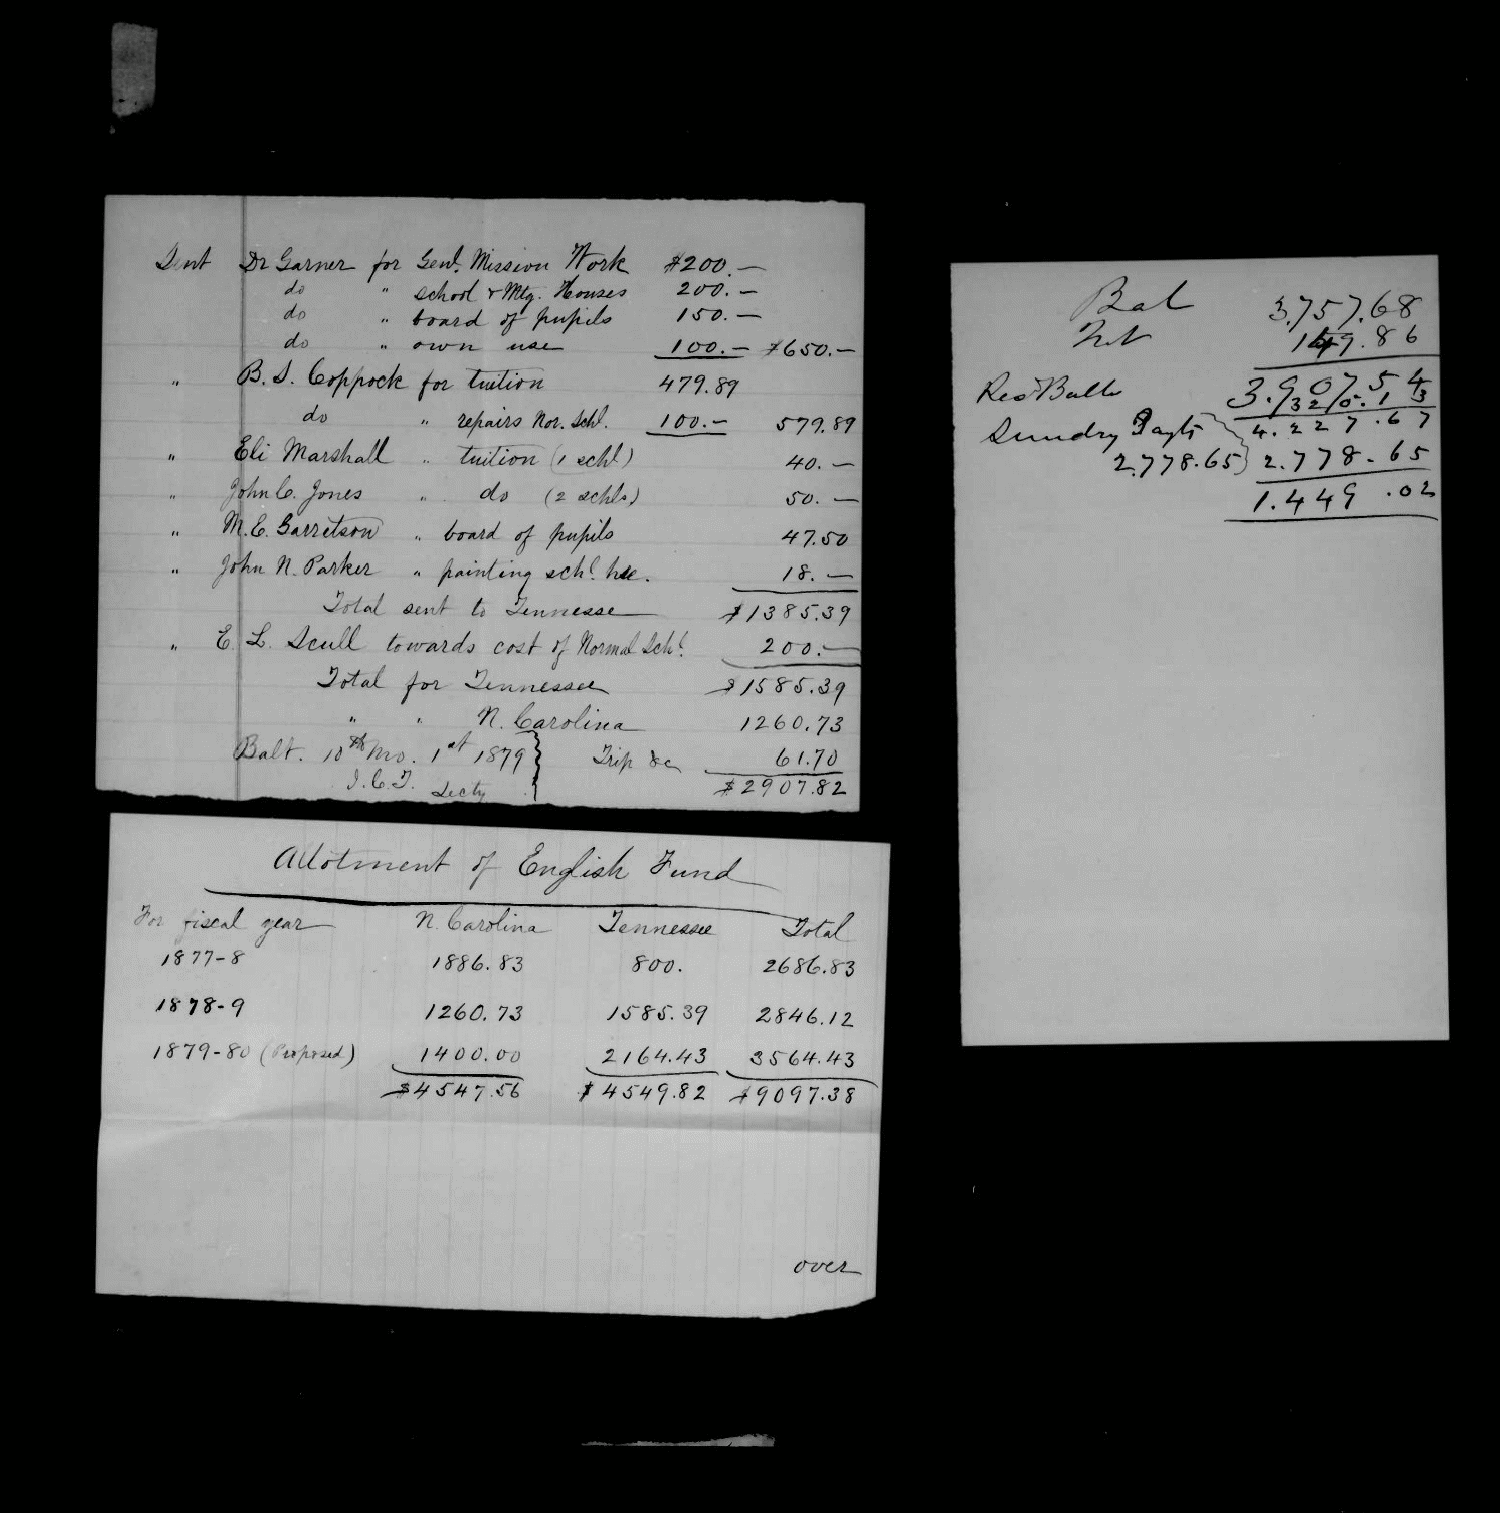 Sent Dr Garner for Genl. Mission Work $200.—
do " school & Mtg. Houses 200.—
do " board of pupils 150.—
do " own use 100.— $650.—
" B. S. Coppock for tuition 479.89
do " repairs Nor. Schl. 100.— 579.89
" Eli Marshall " tuition (1 schl) 40.—
" John C. Jones " do (2 schls) 50.—
" M. E. Garretson " board of pupils 47.50
" John N. Parker " painting schl. hse. 18.—
Total sent to Tennessee $1385.39
" E. L. Scull towards cost of Normal Schl. 200.—
Total for Tennessee $1585.39
" " N. Carolina 1260.73
Balt. 10th Mo. 1st 1879 } Trip &c 61.70
J.C.T. Secty $2907.82
Allotment of English Fund
For fiscal year N. Carolina Tennessee Total
1877-8 1886.83 800. 2686.83
1878-9 1260.73 1585.39 2846.12
1879-80 (Proposed) 1400.00 2164.43 3564.43
$4547.56 $4549.82 $9097.38
over
Bal 3.757.68
Int 149.86
3.907.54
Recd Balto 320.13
Sundry Payts 4.227.67
2.778.65 } 2.778.65
1.449.02